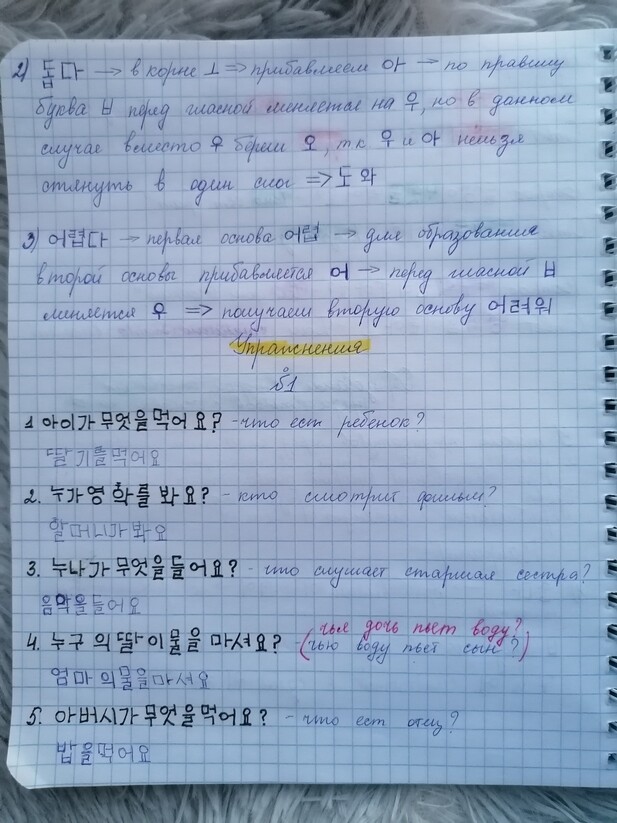 2) 돕다 → в корне ㅗ => прибавляем 아 → по правилу
буква ㅂ перед гласной меняется на 우, но в данном
случае вместо 우 берем 오, тк 우 и 아 нельзя
стянуть в один слог => 도와
3) 어렵다 → первая основа 어렵 → для образования
второй основы прибавляется 어 → перед гласной ㅂ
меняется 우 => получаем вторую основу 어려워
Упражнения
№1
1 아이가 무엇을 먹어요? - что ест ребенок?
딸기를 먹어요
2. 누가 영화를 봐요? - кто смотрит фильм?
할머니가 봐요
3. 누나가 무엇을 들어요? - что слушает старшая сестра?
음악을 들어요
чья дочь пьет воду?
4. 누구의 딸이 물을 마셔요? - (чью воду пьет сын?)
엄마의 물을 마셔요
5. 아버시가 무엇을 먹어요? - что ест отец?
밥을 먹어요